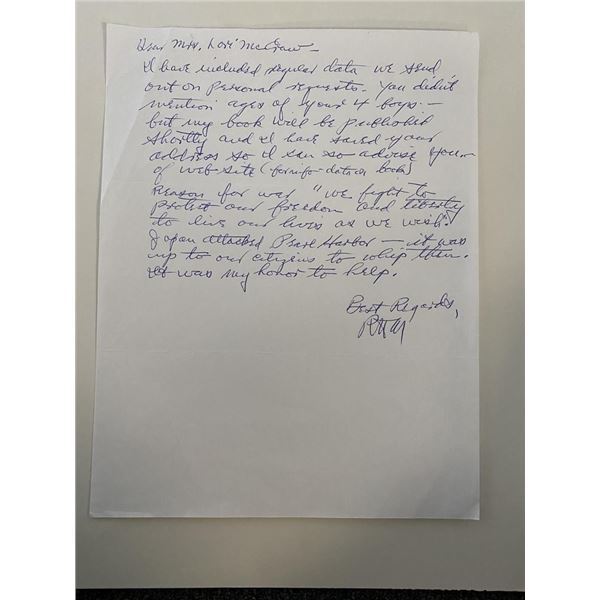 Dear Mrs. Lori McGraw –
I have included regular data we send
out on personal requests. You didn't
mention ages of your 4 boys. –
but my book will be published
shortly and I have saved your
address so I can so advise you –
of web-site (for info-data on book)
Reason for war "we fight to
protect our freedom and liberty
to live our lives as we wish".
Japan attacked Pearl Harbor – it was
up to our citizens to whip them.
It was my honor to help.
Best Regards,